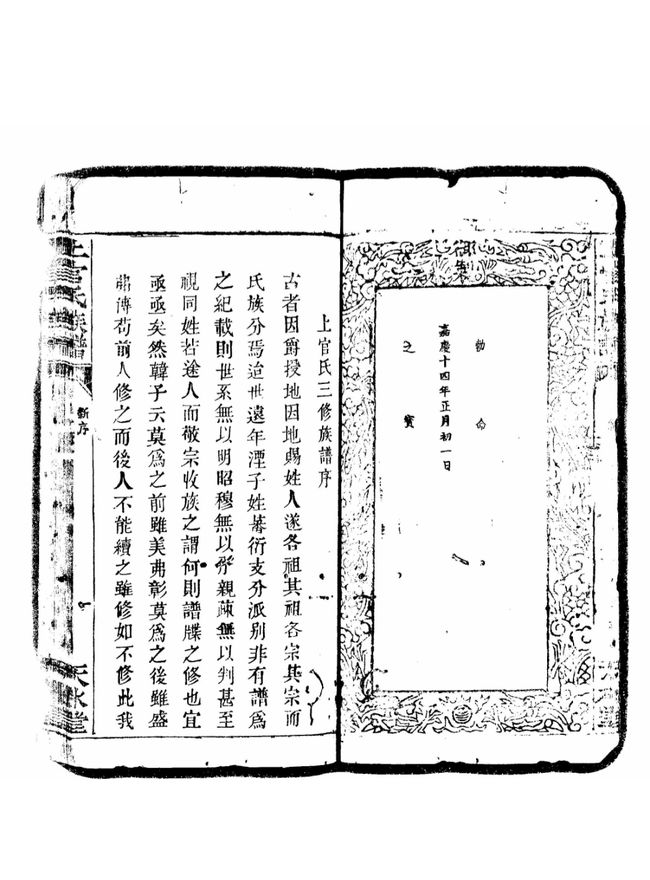 御製
勅命
嘉慶十四年正月初一日
之寶
上官氏三修族譜序
古者因爵授地因地賜姓人遂各祖其祖各宗其宗而
氏族分焉迨世遠年湮子姓蕃衍支分派別非有譜爲
之紀載則世系無以明昭穆無以序親疎無以判甚至
視同姓若途人而敬宗收族之謂何則譜牒之修也宜
亟亟矣然韓子云莫爲之前雖美弗彰莫爲之後雖盛
弗傳苟前人修之而後人不能續之雖修如不修此我
上官氏族譜
新序
天水堂